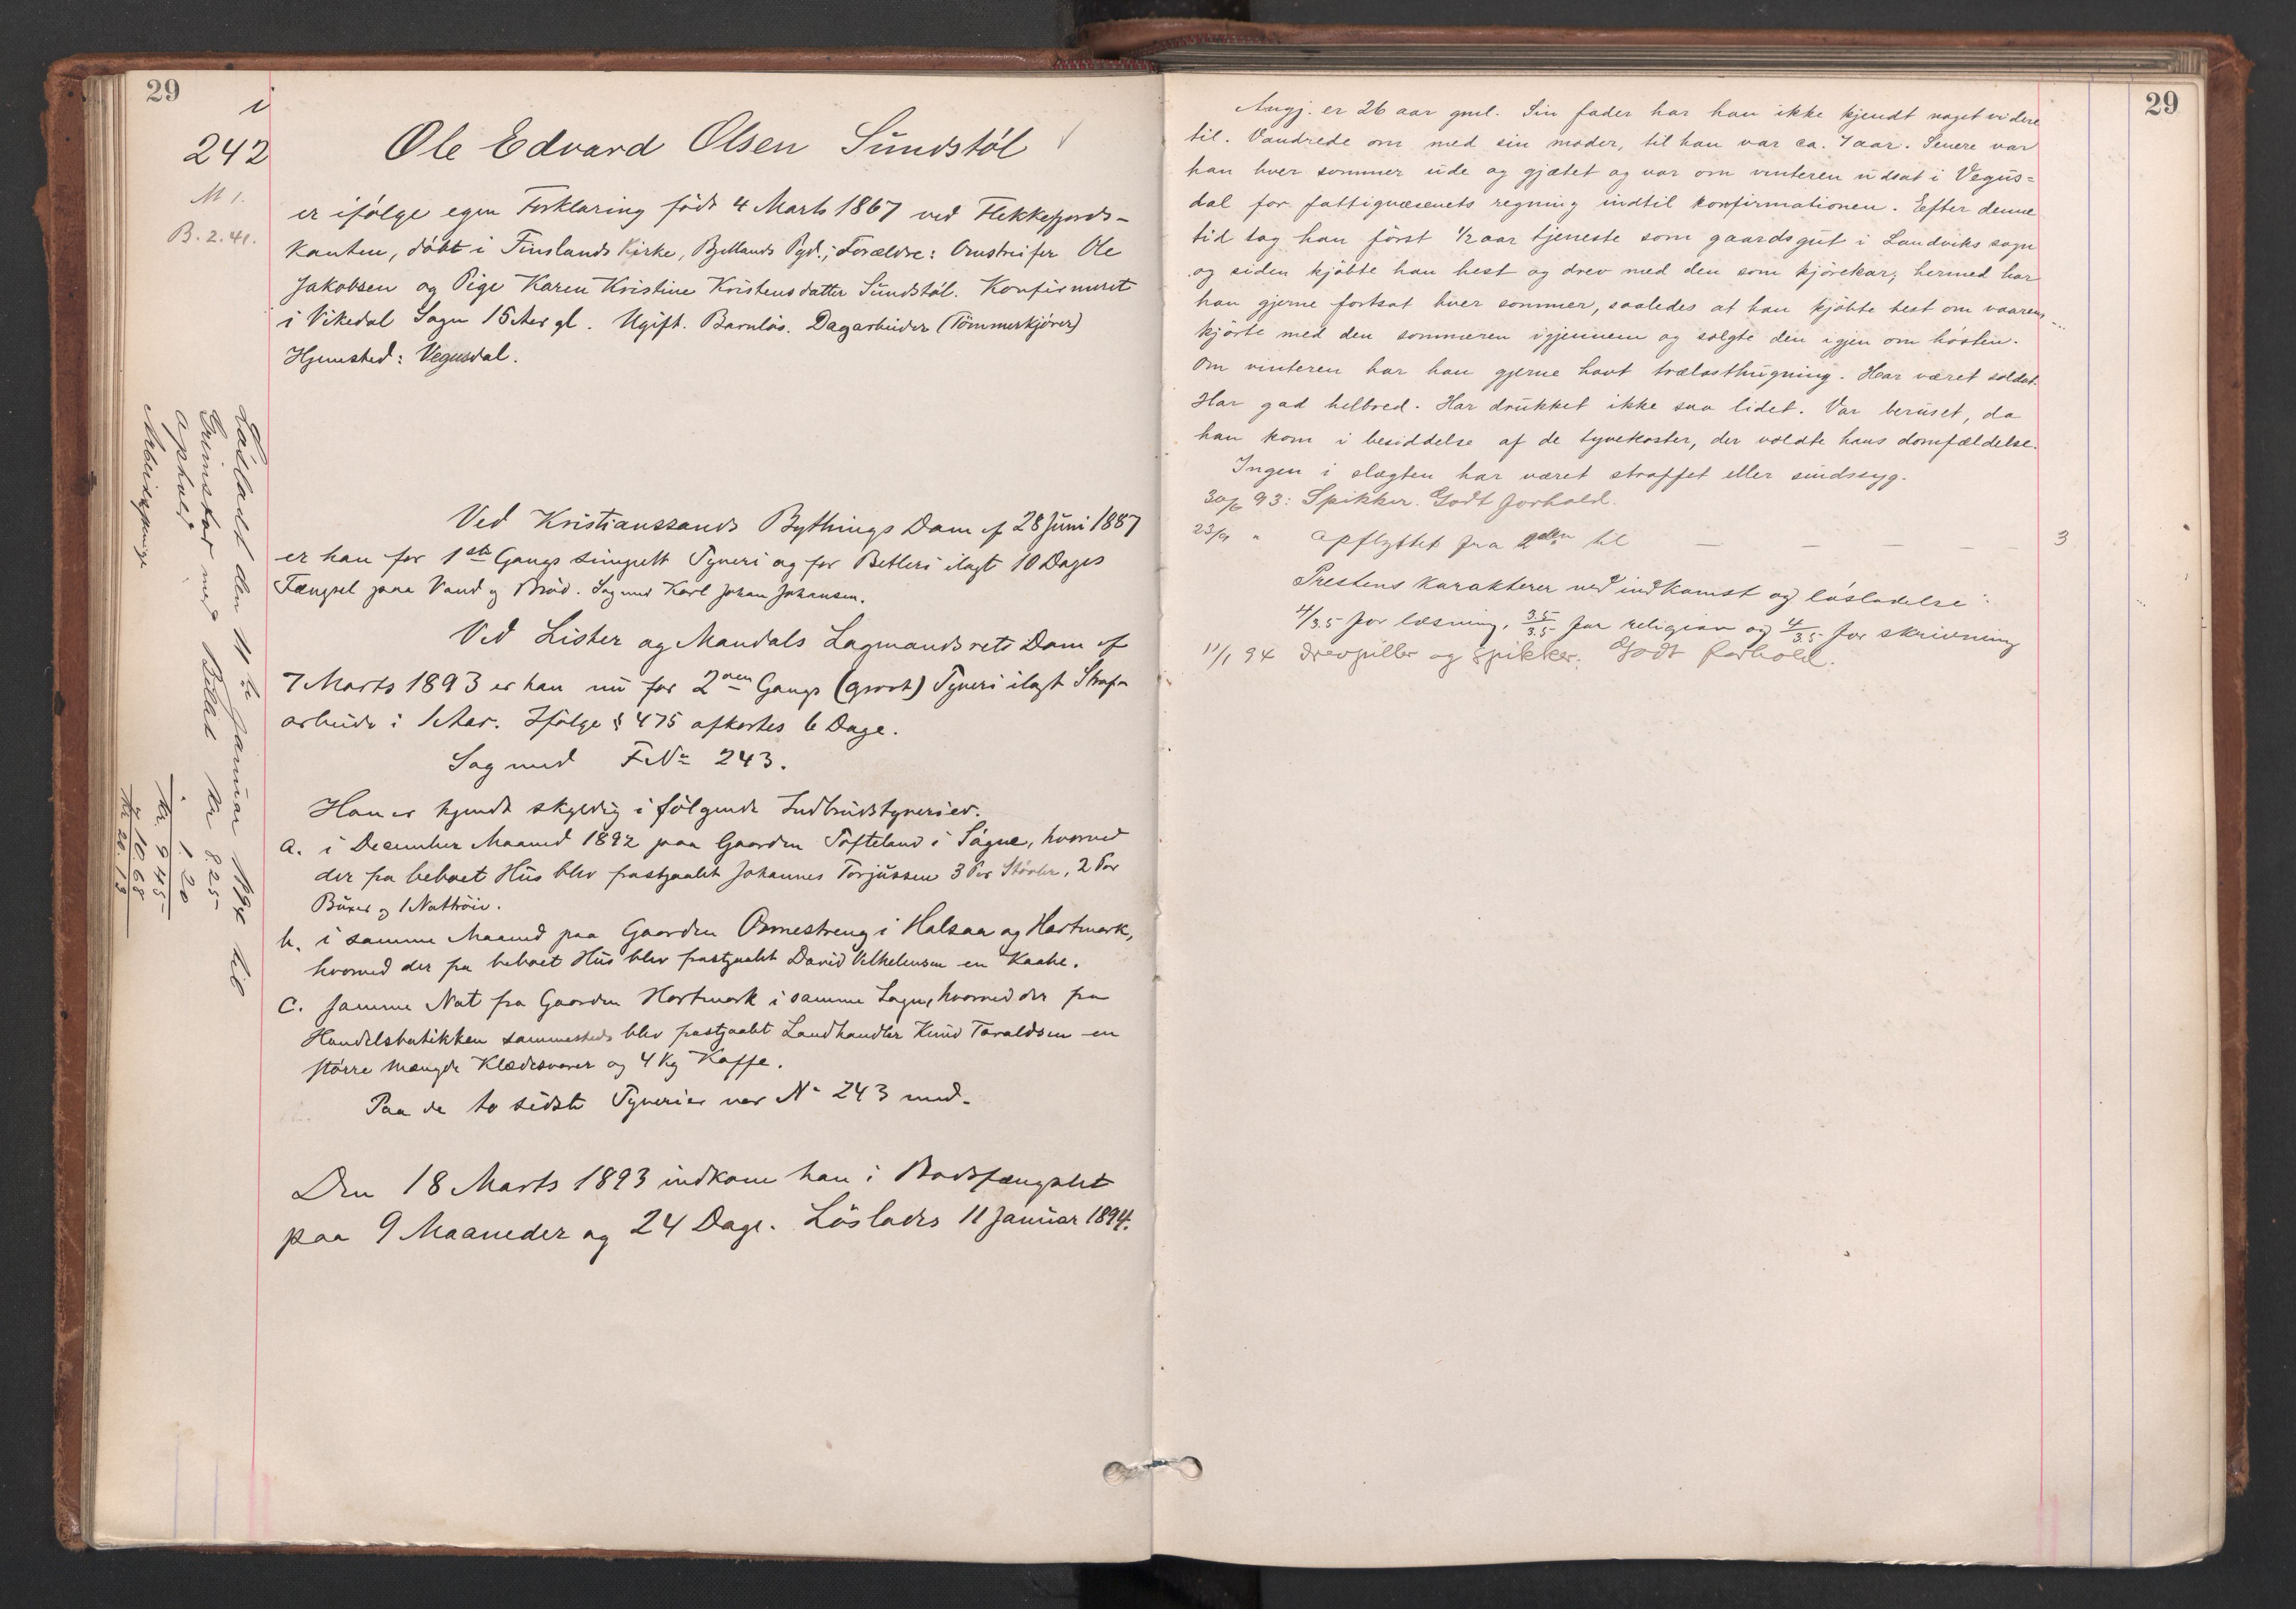 29
i
242
M 1.
B. 2. 41.
Ole Edvard Olsen Sundstøl
er ifølge egen Forklaring født 4 Marts 1867 ved Flekkefjords-
kanten, døbt i Finslands Kirke, Bjellands Pgd.; Forældre: Omstreifer Ole
Jakobsen og Pige Karen Kristine Kristensdatter Sundstøl. Konfirmeret
i Vikedal Sogn 15 Aar gl. Ugift. Barnløs. Dagarbeider (Tømmerkjører)
Hjemsted: Vegusdal.
Ved Kristianssands Bythings Dom af 28 Juni 1887
er han for 1ste Gangs simpelt Tyveri og for Betleri ilagt 10 Dages
Fængsel paa Vand og Brød. Sag med Karl Johan Johansen.
Ved Lister og Mandals Lagmandsrets Dom af
7 Marts 1893 er han nu for 2den Gangs (grovt) Tyveri ilagt Straf-
arbeide i 1 Aar. Ifølge § 475 afkortes 6 Dage.
Sag med F. No 243.
Han er kjendt skyldig i følgende Indbrudstyverier.
a. i December Maaned 1892 paa Gaarden Tofteland i Søgne, hvorved
der fra beboet Hus blev frastjaalet Johannes Torjussen 3 Par Støvler, 2 Par
Buxer og 1 Nattrøie.
b. i samme Maaned paa Gaarden Ormestreng i Halsaa og Hartmark,
hvorved der fra beboet Hus blev frastjaalet David Vilhelmsen en Kaabe.
c. samme Nat fra Gaarden Hartmark i samme Sogn, hvorved der fra
Handelsbutikken sammesteds blev frastjaalet Landhandler Knud Taraldsen en
større Mængde Klædesvarer og 4 Kg Kaffe.
Paa de to sidste Tyverier var No 243 med.
Den 18 Marts 1893 indkom han i Bodsfængslet
paa 9 Maaneder og 24 Dage. Løslades 11 Januar 1894.
Løsladt den 11te Januar 1894 til
Grimstad med Billet Kr 8.25
Ophold " 1.20
Kr. 9.45
Arbeidspenge " 10.68
Kr. 20.13
29
Angj. er 26 aar gml. Sin fader har han ikke kjendt noget videre
til. Vandrede om med sin moder, til han var ca. 7 aar. Senere var
han hver sommer ude og gjætet og var om vinteren udsat i Vegus-
dal for fattigvæsenets regning indtil konfirmationen. Efter denne
tid tog han først ½ aar tjeneste som gaardsgut i Landviks sogn
og siden kjøbte han hest og drev med den som kjørekar; hermed har
han gjerne fortsat hver sommer, saaledes at han kjøbte hest om vaaren,
kjørte med den sommeren igjennem og solgte den igjen om høsten.
Om vinteren har han gjerne havt trælasthugning. Har været soldat.
Har god helbred. Har drukket ikke saa lidet. Var beruset, da
han kom i besiddelse af de tyvekoster, der voldte hans domfældelse.
Ingen i slægten har været straffet eller sindssyg.
30/6 93: Spikker. Godt forhold.
23/9 " Opflyttet fra 2den til — — — — 3
Prestens karakterer ved indkomst og løsladelse:
4/3.5 for læsning, 3.5/3.5 for religion og 4/3.5 for skrivning
11/1 94 Drevpiller og spikker. Godt forhold.